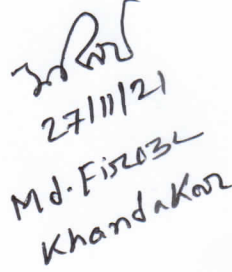 27/11/21
Md. Firoz
Khandakar